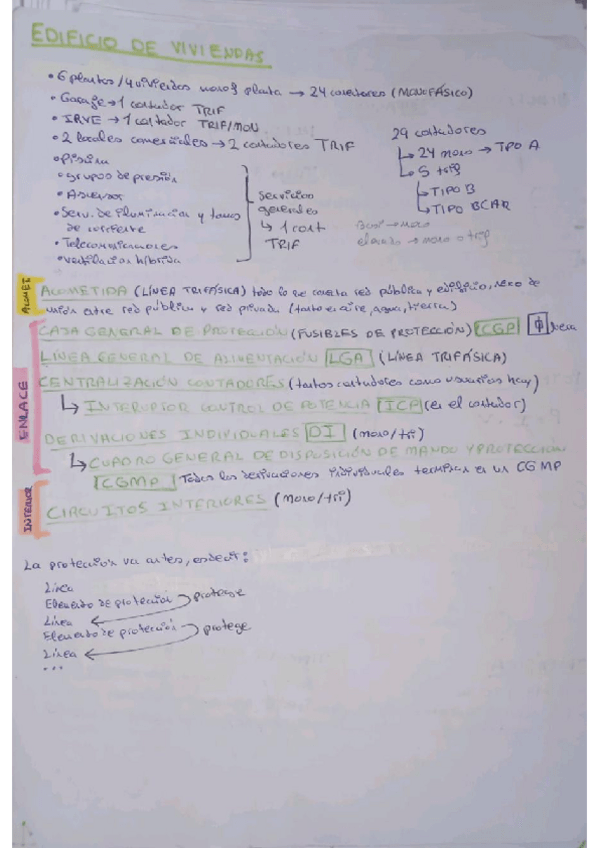 EDIFICIO DE VIVIENDAS
• 6 plantas / 4 viviendas mono planta → 24 contadores (MONOFÁSICO)
• Garage → 1 contador TRIF
• IRVE → 1 contador TRIF/MON
• 2 locales comerciales → 2 contadores TRIF
• Piscina
• grupos de presión
• Ascensor
• Serv. de iluminación y tomas
de corriente
• Telecomunicaciones
• ventilación híbrida
Servicios
generales
↳ 1 cont
TRIF
29 contadores
↳ 24 mono → TIPO A
↳ 5 trif
↳ TIPO B
↳ TIPO BCAR
→ mono
→ mono o trif
ACOMET
ACOMETIDA (LÍNEA TRIFÁSICA) todo lo que conecta red pública y edificio, nexo de
unión entre red pública y red privada (tanto en aire, agua, tierra)
ENLACE
CAJA GENERAL DE PROTECCIÓN (FUSIBLES DE PROTECCIÓN) CGP
LÍNEA GENERAL DE ALIMENTACIÓN LGA (LÍNEA TRIFÁSICA)
CENTRALIZACIÓN CONTADORES (tantos contadores como usuarios hay)
↳ INTERUPTOR CONTROL DE POTENCIA ICP (en el contador)
DERIVACIONES INDIVIDUALES DI (mono/tri)
↳ CUADRO GENERAL DE DISPOSICIÓN DE MANDO Y PROTECCION
CGMP Todas las derivaciones individuales terminan en un CGMP
INTERIOR
CIRCUITOS INTERIORES (mono/tri)
La protección va antes, es decir:
Línea
Elemento de protección protege
Línea
Elemento de protección protege
Línea
...